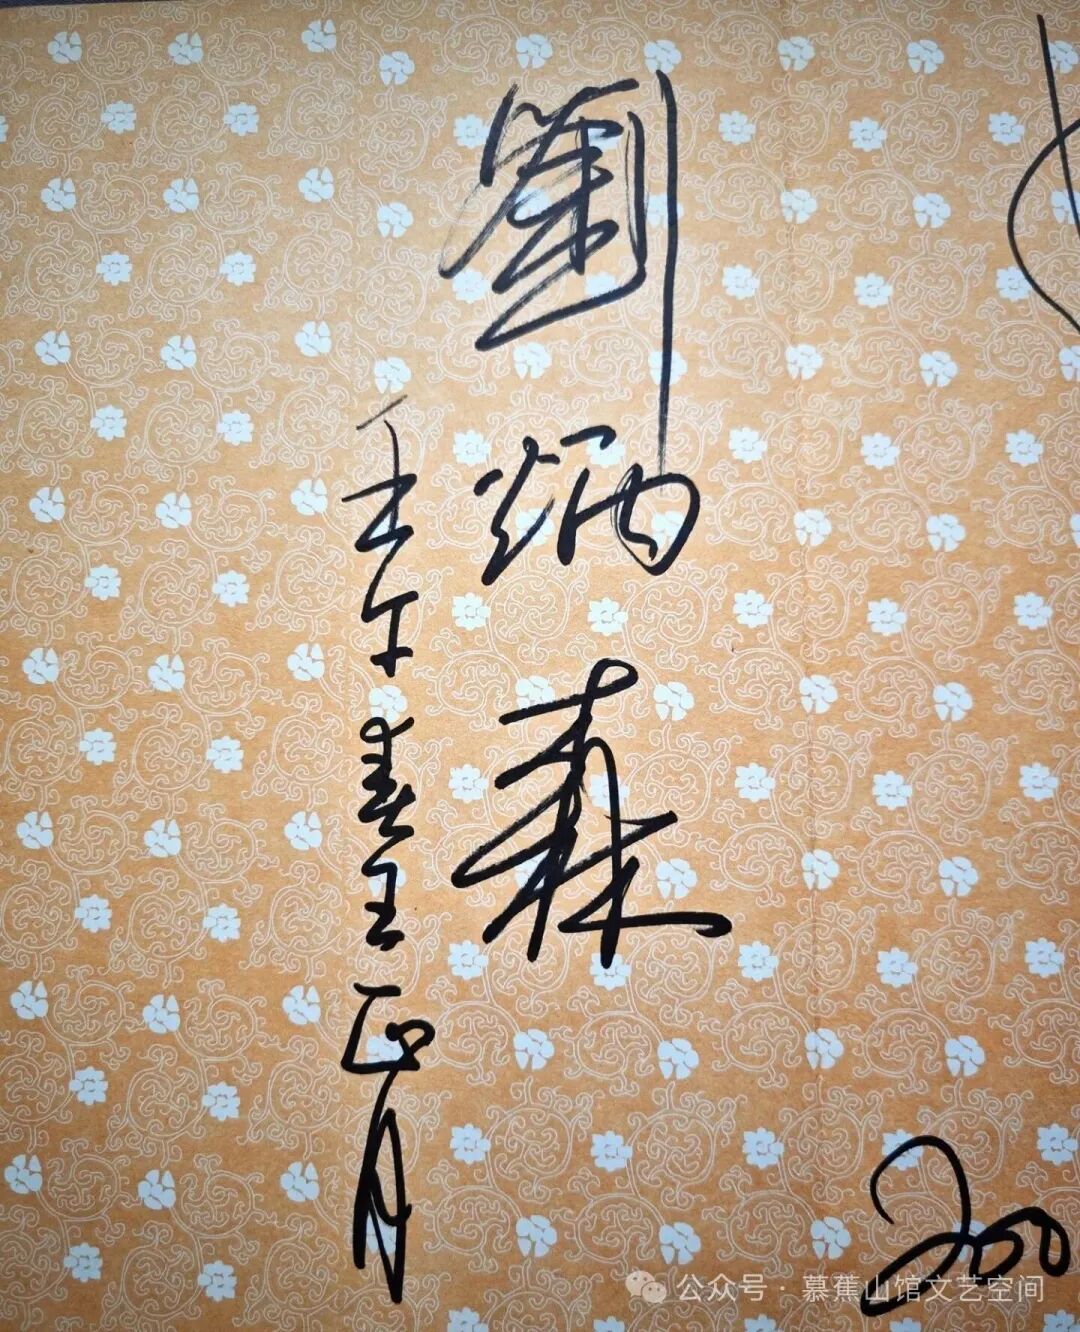 200
劉炳森
壬午春王正月
公众号 · 慕蕉山馆文艺空间